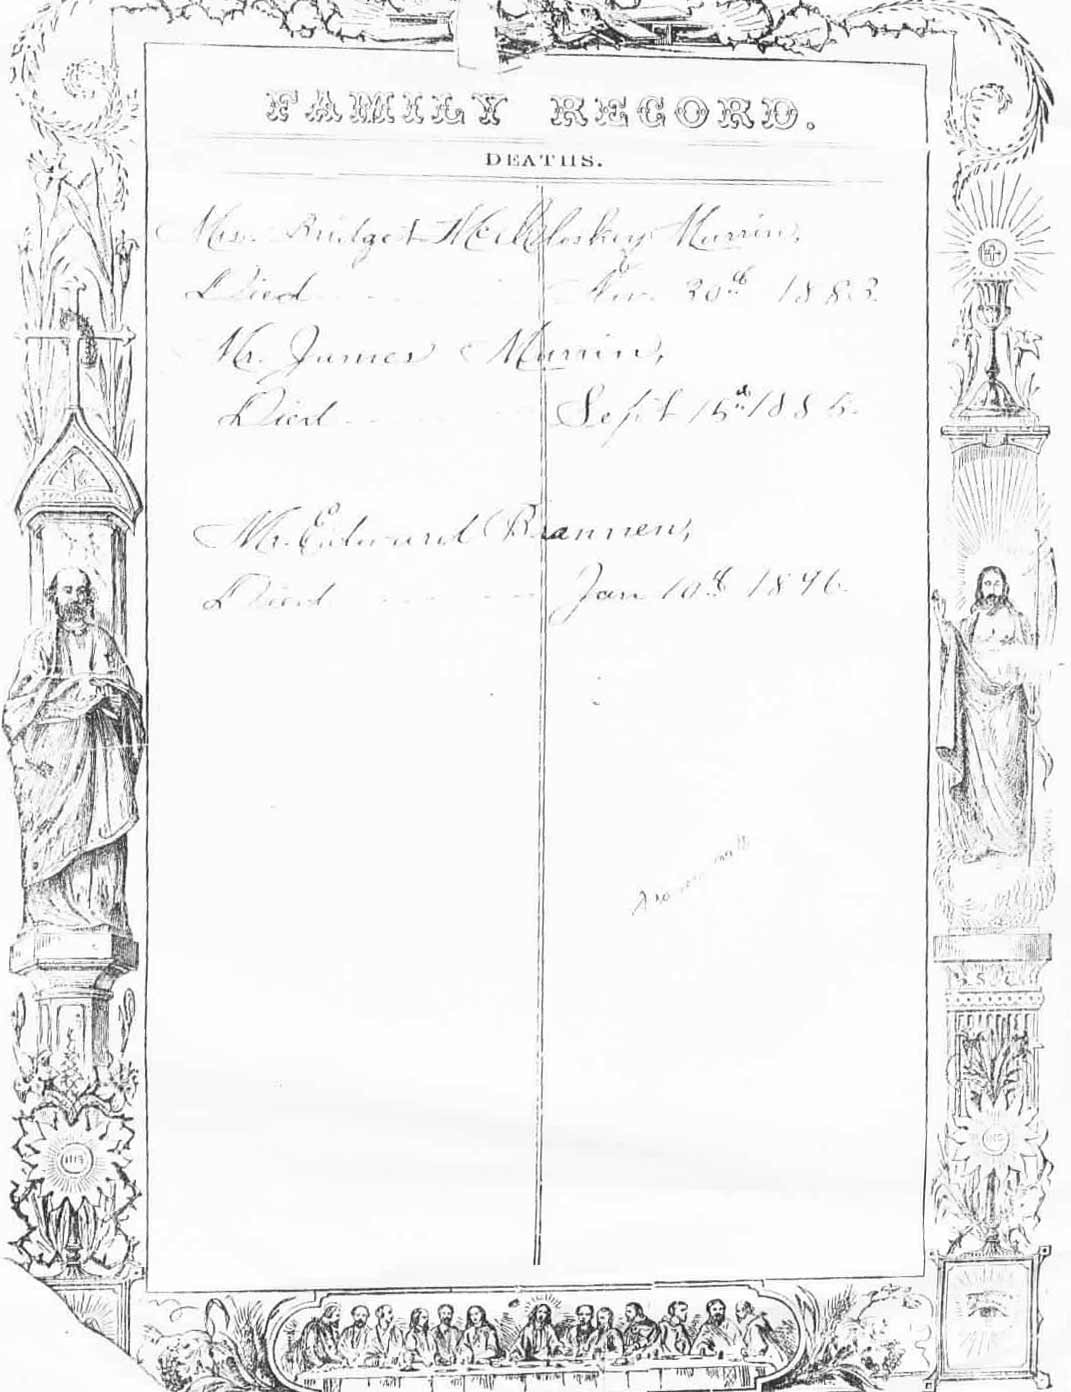 FAMILY RECORD.
DEATHS.
Mrs. Bridget McCloskey Murrin,
Died Nov. 30th 1883.
Mr. James Murrin,
Died Sept 15th 1885.
Mr. Edward Brannen,
Died Jan 10th 1896.
IHS